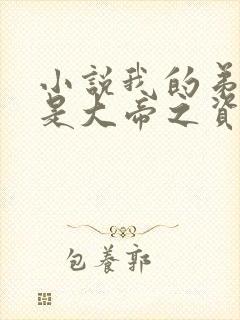 小說我的弟
是大帝之資
包養郭